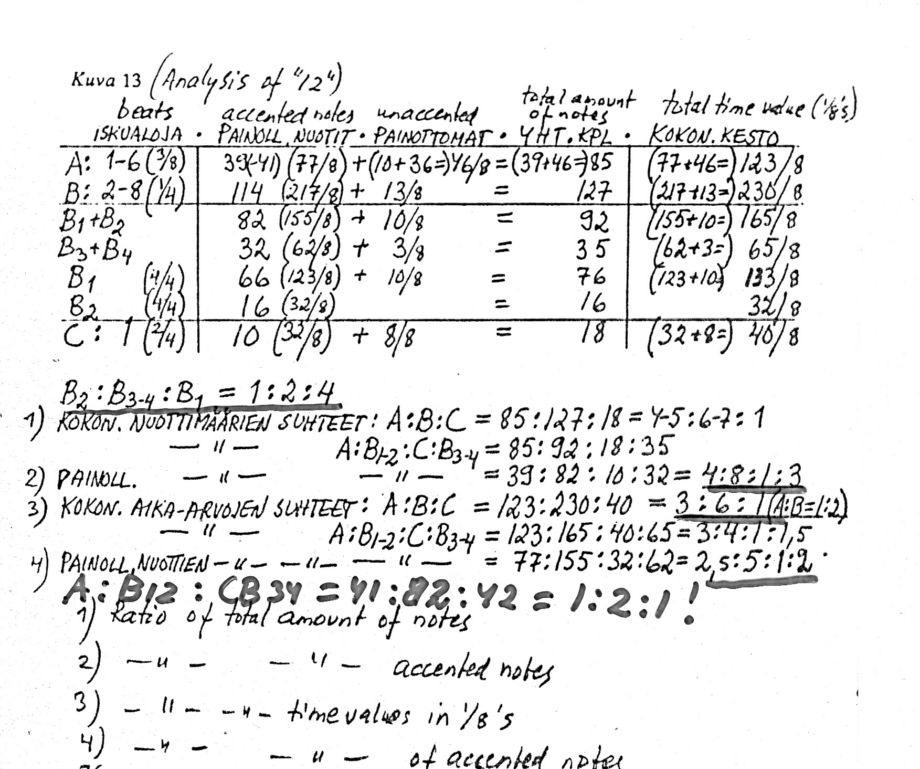 Kuva 13 (Analysis of "12")
beats accented notes unaccented total amount of notes total time value (1/8's)
ISKUALOJA • PAINOLL. NUOTIT • PAINOTTOMAT • YHT. KPL • KOKON. KESTO
A: 1-6 (3/8) 39(-41) (77/8) + (10+36=)46/8 = (39+46=)85 (77+46=) 123/8
B: 2-8 (1/4) 114 (217/8) + 13/8 = 127 (217+13=) 230/8
B1+B2 82 (155/8) + 10/8 = 92 (155+10=) 165/8
B3+B4 32 (62/8) + 3/8 = 35 (62+3=) 65/8
B1 (4/4) 66 (123/8) + 10/8 = 76 (123+10) 133/8
B2 (4/4) 16 (32/8) = 16 32/8
C: 1 (2/4) 10 (32/8) + 8/8 = 18 (32+8=) 40/8
B2:B3-4:B1 = 1:2:4
1) KOKON. NUOTTIMÄÄRIEN SUHTEET: A:B:C = 85:127:18 = 4-5:6-7:1
— " — A:B1-2:C:B3-4 = 85:92:18:35
2) PAINOLL. — " — — " — = 39:82:10:32 = 4:8:1:3
3) KOKON. AIKA-ARVOJEN SUHTEET: A:B:C = 123:230:40 = 3:6:1 (A:B=1:2)
— " — A:B1-2:C:B3-4 = 123:165:40:65 = 3:4:1:1,5
4) PAINOLL. NUOTTIEN — " — — " — — " — = 77:155:32:62 = 2,5:5:1:2
A:B12:CB34 = 41:82:42 = 1:2:1!
1) Ratio of total amount of notes
2) — " — — " — accented notes
3) — " — — " — time values in 1/8's
4) — " — — " — of accented notes